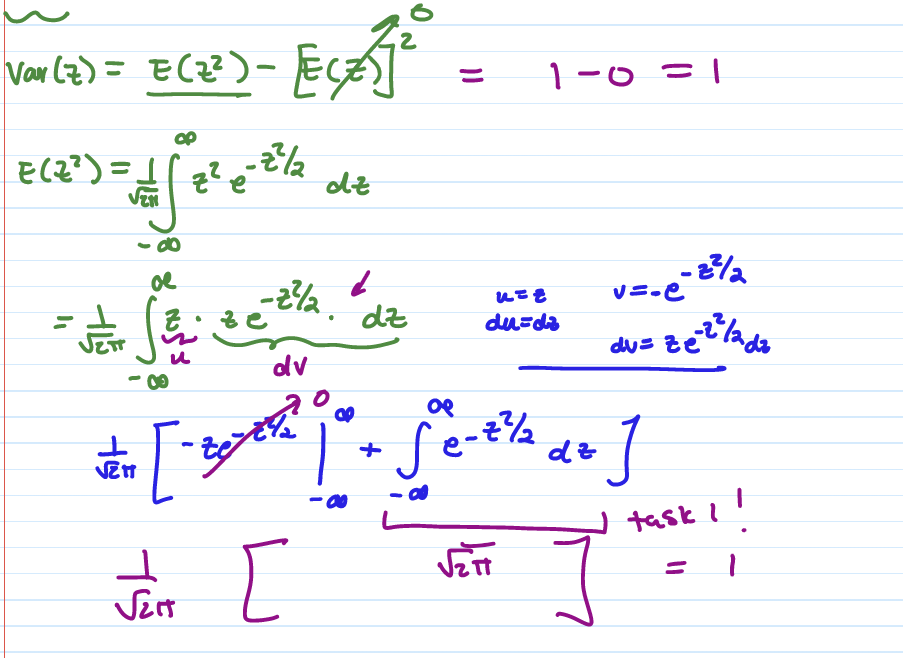 Var(z) = E(z²) - [E(z)]² → 0 = 1 - 0 = 1
E(z²) = 1/√2π ∫_{-∞}^{∞} z² e^{-z²/2} dz
= 1/√2π ∫_{-∞}^{∞} z · z e^{-z²/2} · dz
u
dv
u = z
du = dz
v = -e^{-z²/2}
dv = z e^{-z²/2} dz
1/√2π [ -z e^{-z²/2} |_{-∞}^{∞} → 0 + ∫_{-∞}^{∞} e^{-z²/2} dz ]
task 1!
1/√2π [ √2π ] = 1